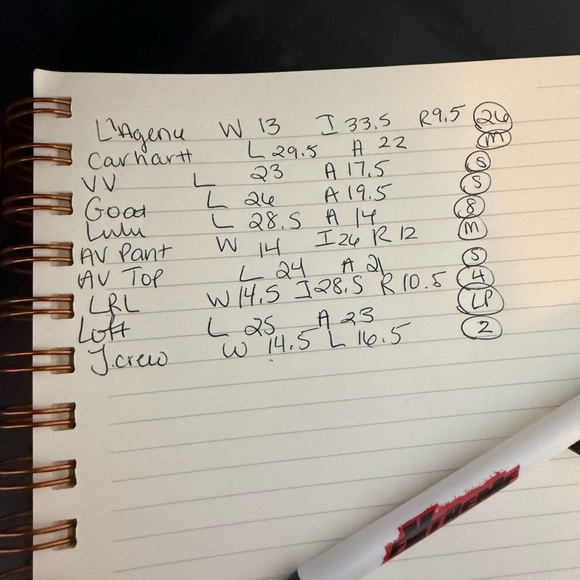 L'Agence W 13 I 33.5 R 9.5 26
Carhartt L 29.5 A 22 M
VV L 23 A 17.5 S
Good L 26 A 19.5 S
Lulu L 28.5 A 14 8
AV Pant W 14 I 26 R 12 M
AV TOP L 24 A 21 S
LRL W 14.5 I 28.5 R 10.5 4
Loft L 25 A 23 LP
J.crew W 14.5 L 16.5 2
EXTREME